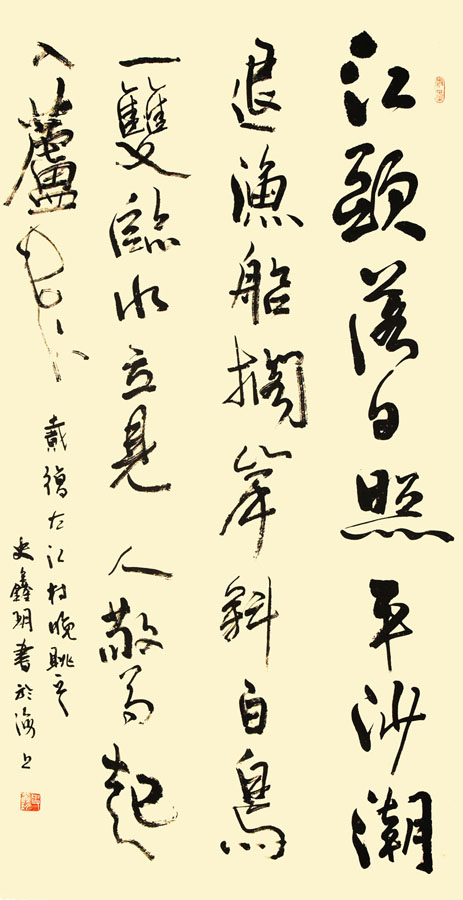 江頭落日照平沙潮
退漁船擱岸斜白鳥
一雙臨水立見人驚起
入蘆花
戴復古江村晚眺
史鑫書於海上